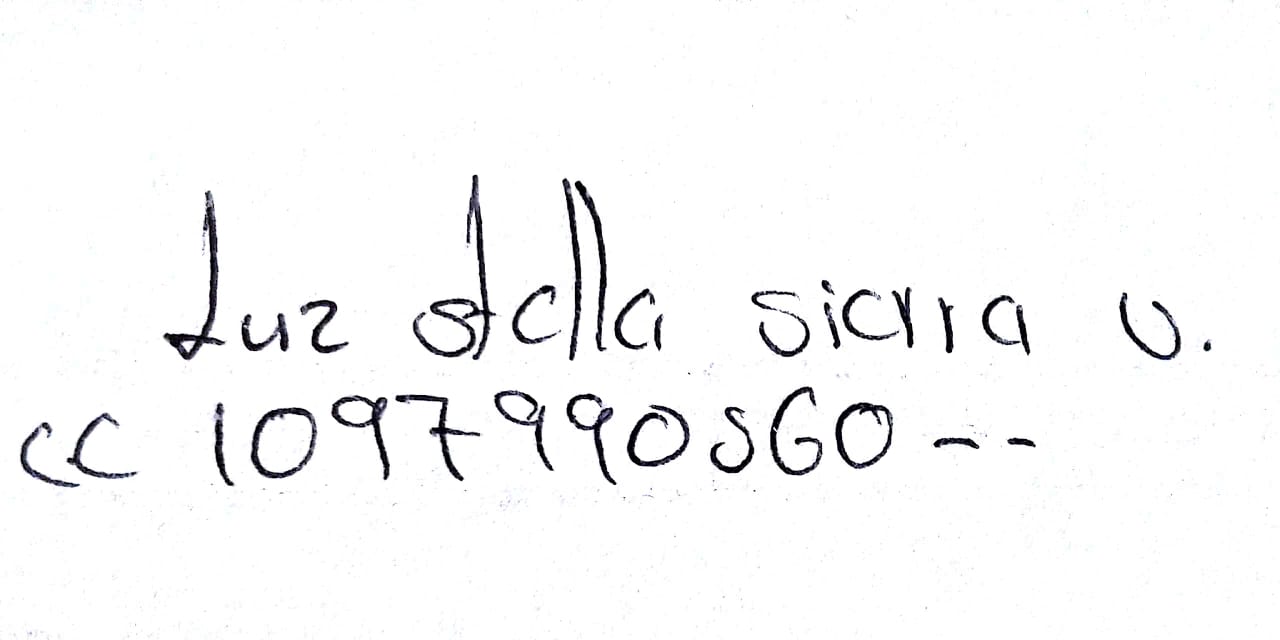 Luz stella sierra v.
cc 1097990560 --